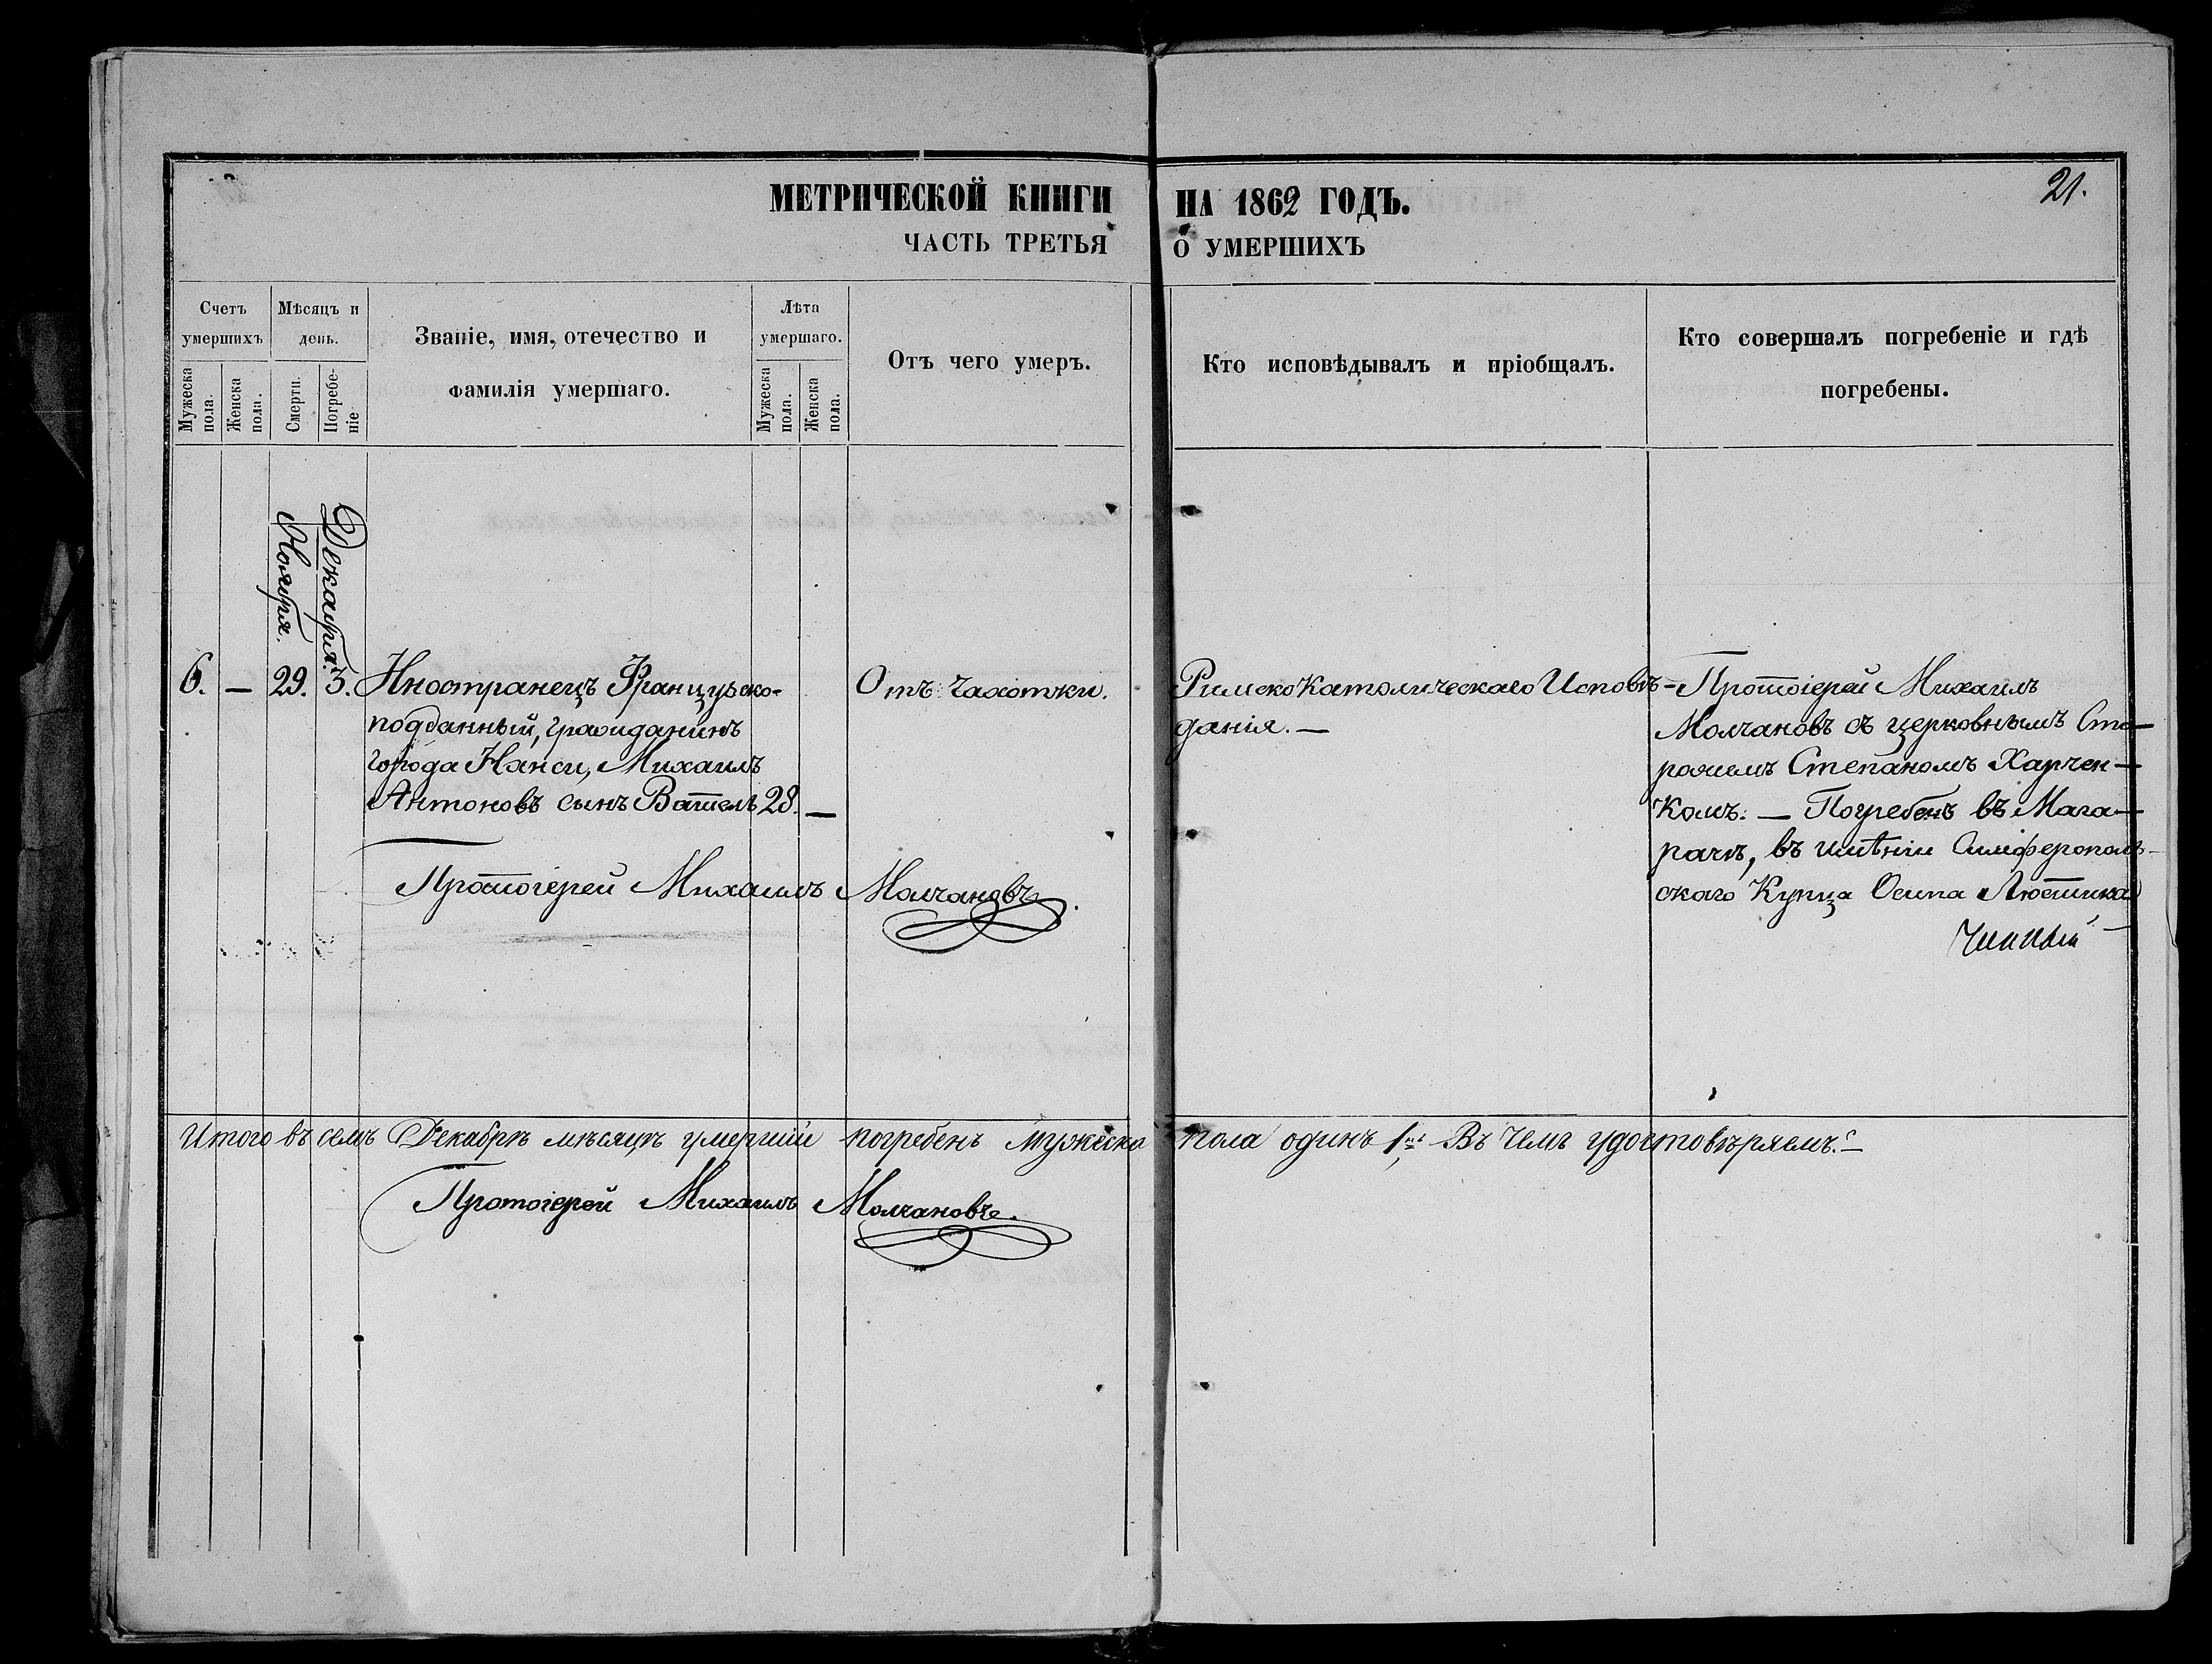 МЕТРИЧЕСКОЙ КНИГИ НА 1862 ГОДЪ.
21.
ЧАСТЬ ТРЕТЬЯ О УМЕРШИХЪ
Счетъ умершихъ
Мужеска пола.
Женска пола.
Мѣсяцъ и день.
Смерти.
Погребеніе
Званіе, имя, отечество и
фамилія умершаго.
Лѣта умершаго.
Мужеска пола.
Женска пола.
Отъ чего умеръ.
Кто исповѣдывалъ и пріобщалъ.
Кто совершалъ погребеніе и гдѣ
погребены.
Ноября.
Декабря.
6. — 29. 3.
Иностранецъ Французско-
подданный, гражданинъ
города Нанси, Михаилъ
Антоновъ сынъ Вателъ 28. —
Отъ чахотки.
Римско Католическаго Исповѣ-
данія. —
Протоіерей Михаилъ
Молчановъ съ церковнымъ Сто-
рожемъ Степаномъ Харчен-
комъ. — Погребенъ въ Мага-
рачѣ, въ имѣніи Симферополь-
скаго Купца Осипа
Протоіерей Михаилъ Молчановъ.
Итого въ семъ Декабрѣ мѣсяцѣ умершій погребенъ мужеска пола одинъ 1, Въ чемъ удостовѣряемъ. —
Протоіерей Михаилъ Молчановъ.